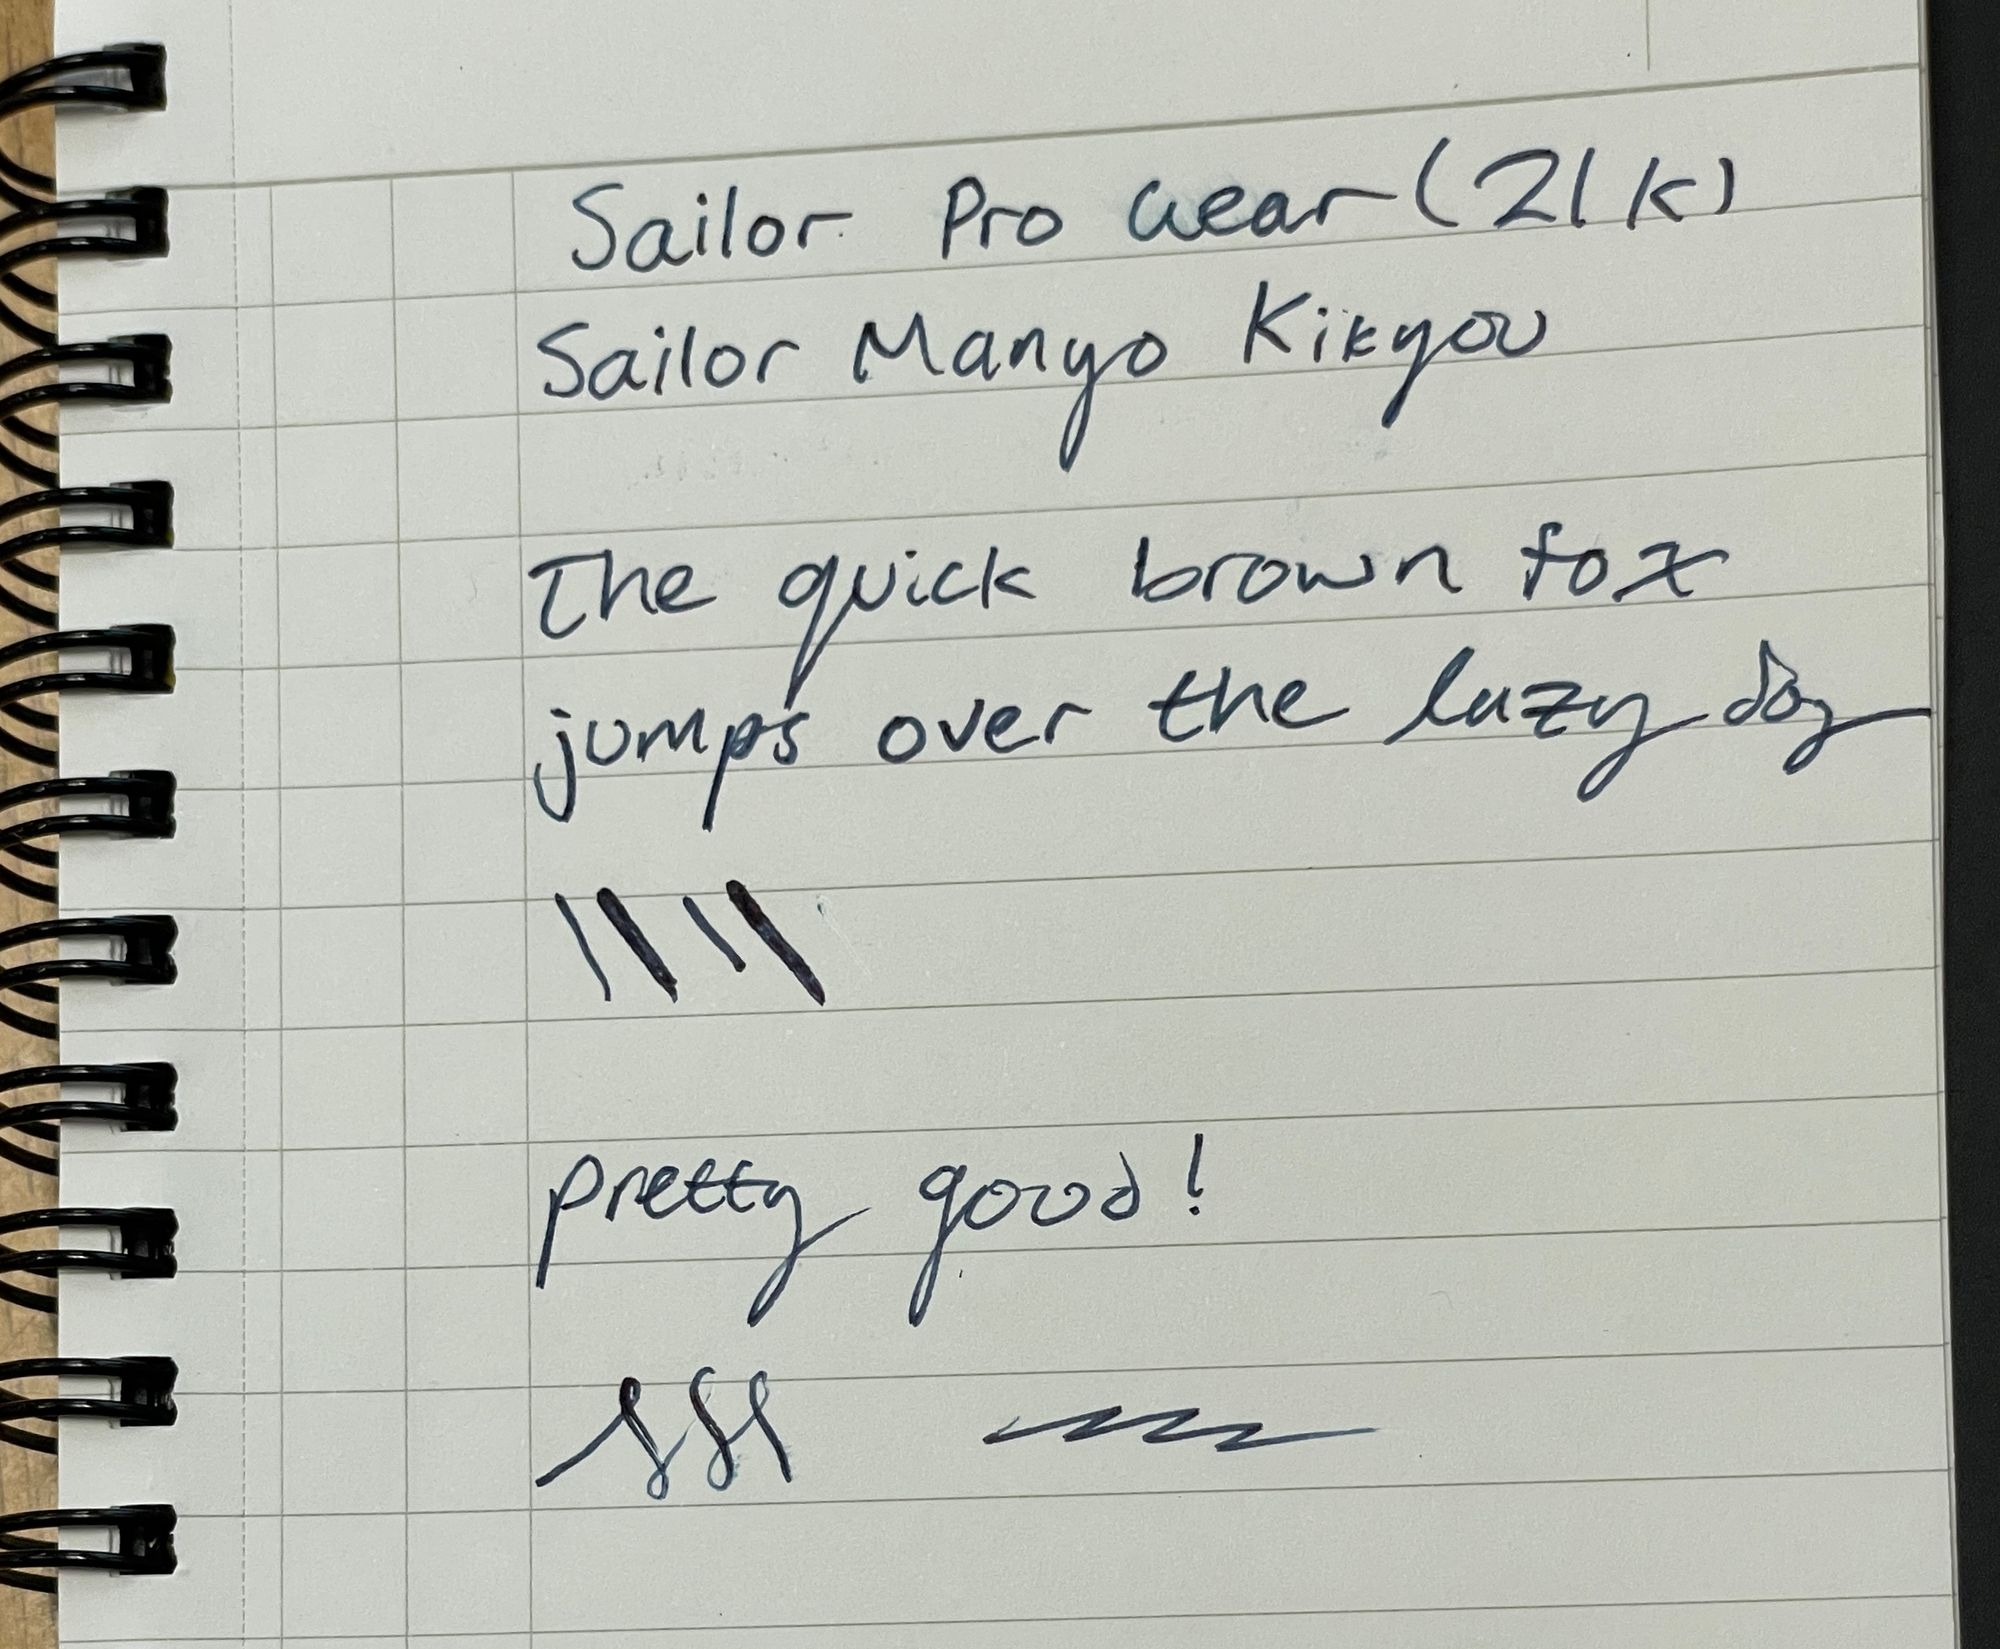 Sailor Pro Gear (21K)
Sailor Manyo Kikyou
The quick brown fox
jumps over the lazy dog
pretty good!